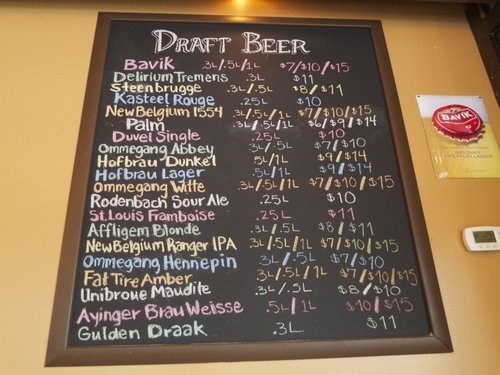 DRAFT BEER
Bavik .3L/.5L/1L $7/$10/$15
Delirium Tremens .3L $11
Steenbrugge .3L/.5L $8/$11
Kasteel Rouge .25L $10
New Belgium 1554 .3L/.5L/1L $7/$10/$15
Palm .3L/.5L/1L $6/$9/$14
Duvel Single .25L $10
Ommegang Abbey .3L/.5L $7/$10
Hofbrau Dunkel .5L/1L $9/$14
Hofbrau Lager .5L/1L $9/$14
Ommegang Witte .3L/.5L/1L $7/$10/$15
Rodenbach Sour Ale .25L $10
St.Louis Framboise .25L $11
Affligem Blonde .3L/.5L $8/$11
New Belgium Ranger IPA .3L/.5L/1L $7/$10/$15
Ommegang Hennepin .3L/.5L $7/$10
Fat Tire Amber .3L/.5L/1L $7/$10/$15
Unibroue Maudite .3L/.5L $8/$10
Ayinger Brau Weisse .5L/1L $10/$15
Gulden Draak .3L $11
BAVIK